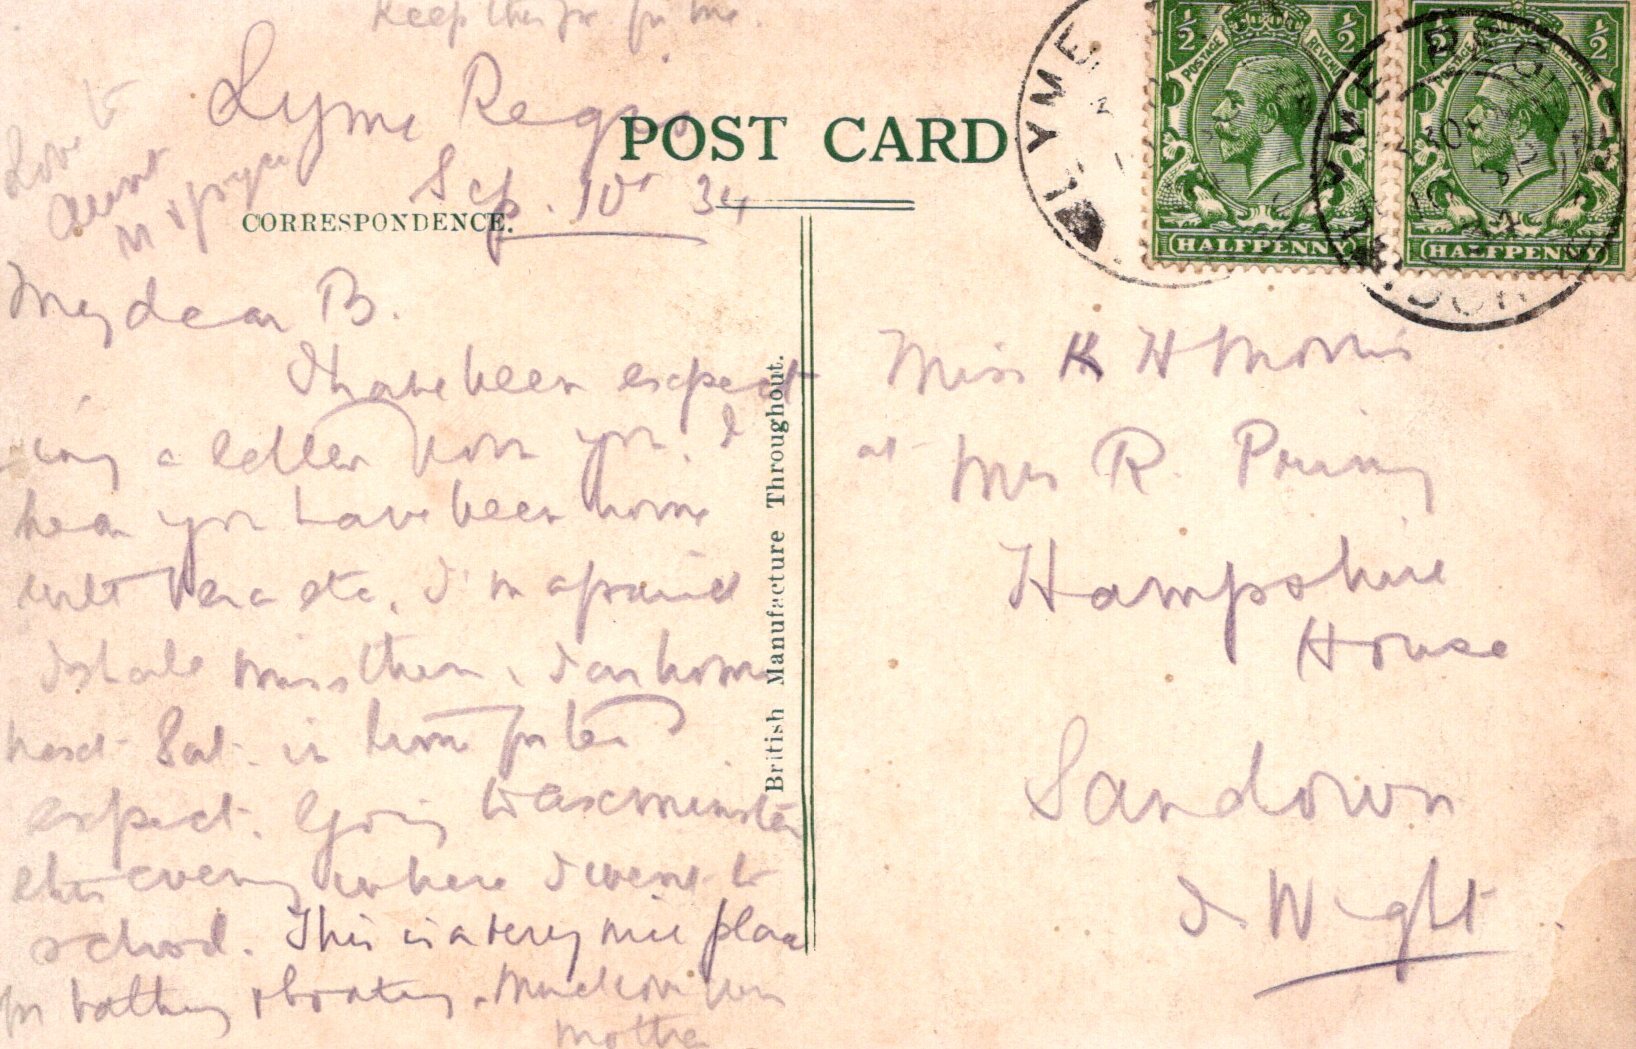 Keep this for me.
Lyme Regis
Sep. 10th 34
Love to
Aunt
POST CARD
CORRESPONDENCE.
My dear B.
I have been expect
ing a letter from you. I
hear you have been home
with Vera etc. I'm afraid
I shall miss them. I am home
next Sat. in time for tea I
expect. Going to Axminster
this evening where I went to
school. This is a very nice place
for bathing & boating. Much love from
Mother
British Manufacture Throughout.
POSTAGE REVENUE
½ ½
HALFPENNY
POSTAGE REVENUE
½ ½
HALFPENNY
LYME
LYME REGIS
2 30 PM
10 SP
34
Miss K H Morris
at Mrs R.
Hampshire
House
Sandown
I. Wight